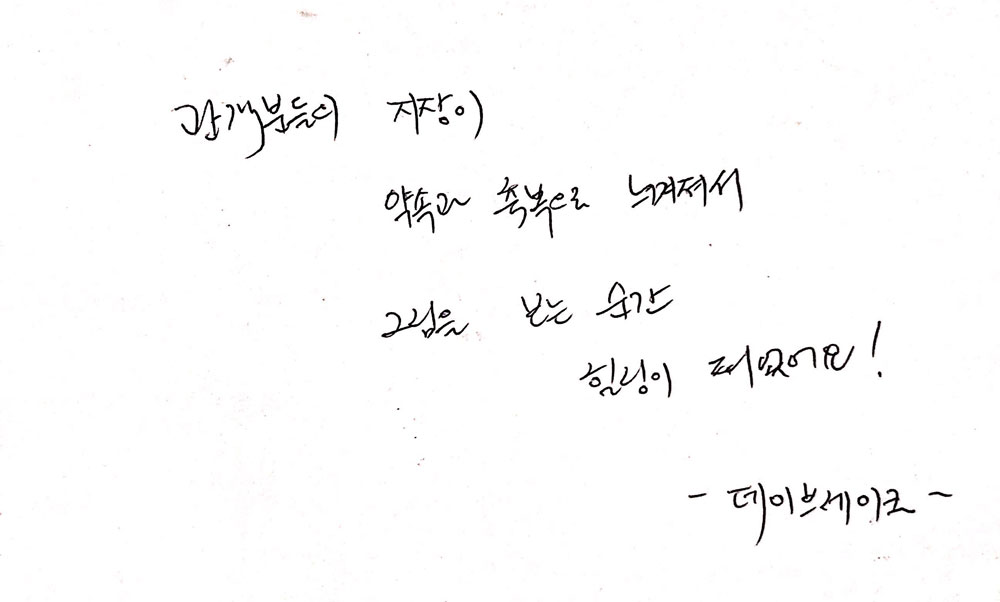 관객분들의 지장이
약속과 축복으로 느껴져서
그림을 보는 순간
힐링이 되었어요!
- 데이브레이크 ~